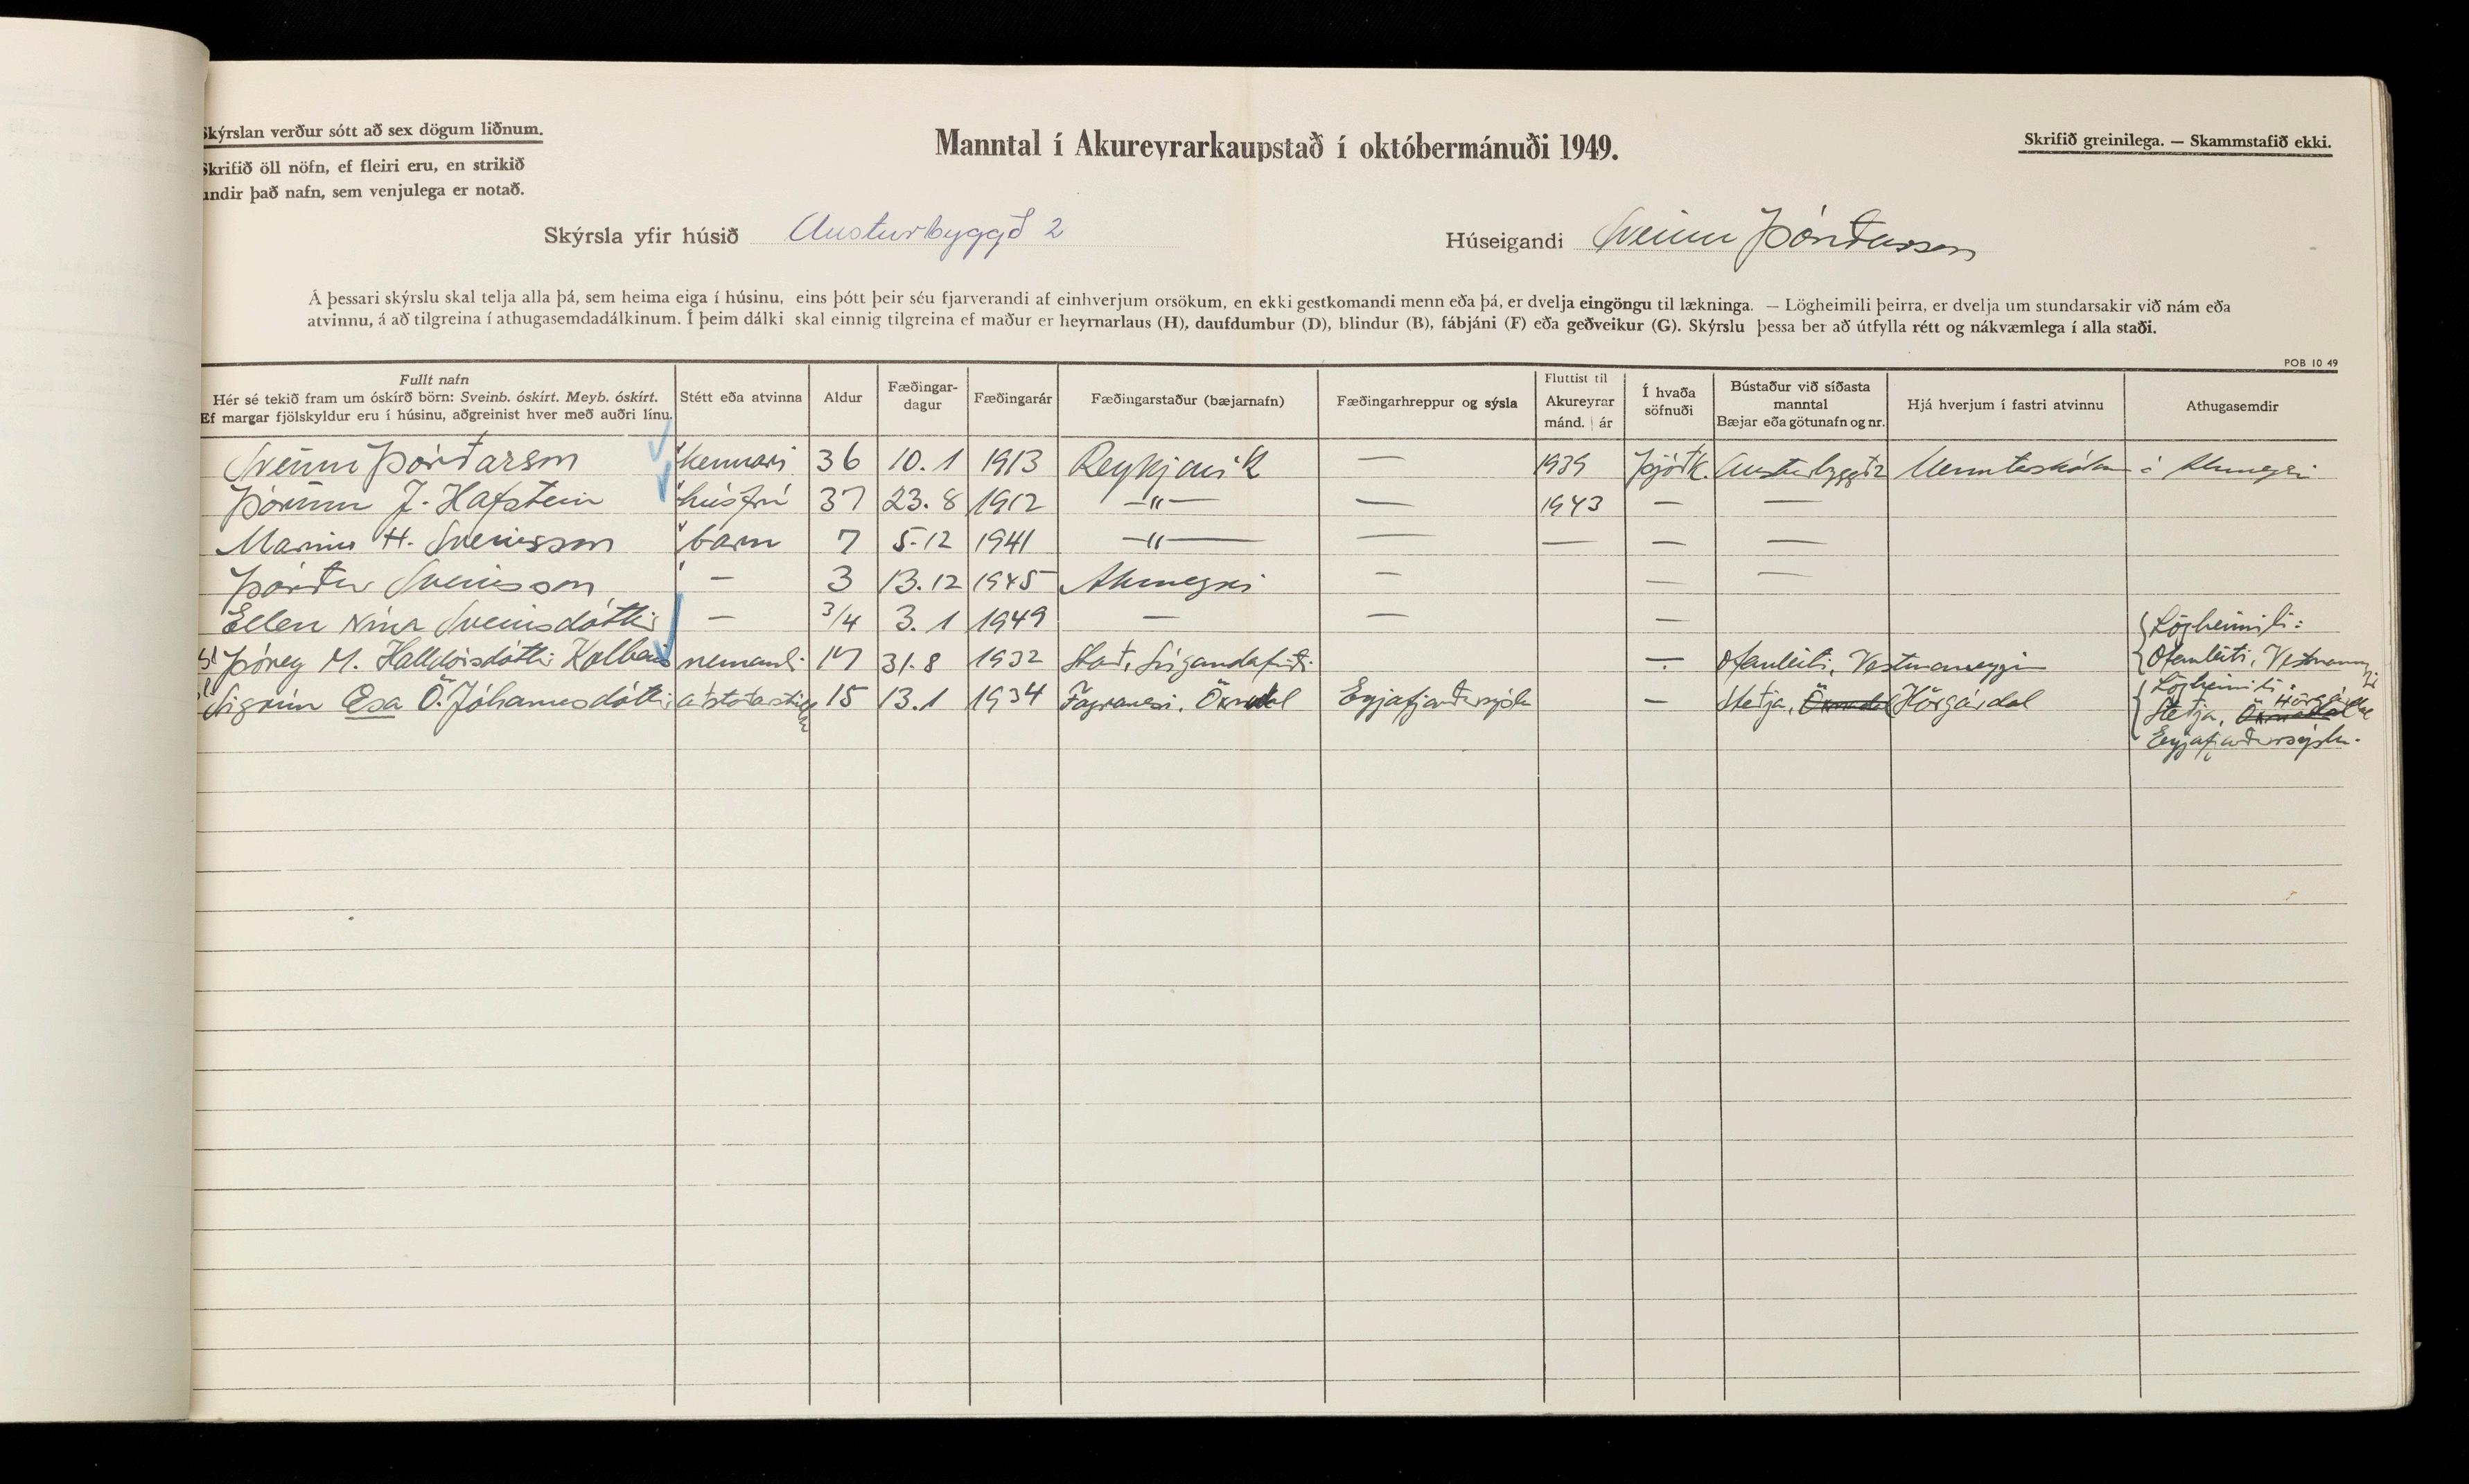 Skýrslan verður sótt að sex dögum liðnum.
Skrifið öll nöfn, ef fleiri eru, en strikið
undir það nafn, sem venjulega er notað.
Manntal í Akureyrarkaupstað í októbermánuði 1949.
Skrifið greinilega. — Skammstafið ekki.
Skýrsla yfir húsið Austurbyggð 2
Húseigandi Sveinn Þórðarson
Á þessari skýrslu skal telja alla þá, sem heima eiga í húsinu, eins þótt þeir séu fjarverandi af einhverjum orsökum, en ekki gestkomandi menn eða þá, er dvelja eingöngu til lækninga. — Lögheimili þeirra, er dvelja um stundarsakir við nám eða
atvinnu, á að tilgreina í athugasemdadálkinum. Í þeim dálki skal einnig tilgreina ef maður er heyrnarlaus (H), daufdumbur (D), blindur (B), fábjáni (F) eða geðveikur (G). Skýrslu þessa ber að útfylla rétt og nákvæmlega í alla staði.
POB 10 49
Fullt nafn
Hér sé tekið fram um óskírð börn: Sveinb. óskírt. Meyb. óskírt.
Ef margar fjölskyldur eru í húsinu, aðgreinist hver með auðri línu.
Stétt eða atvinna
Aldur
Fæðingar-
dagur
Fæðingarár
Fæðingarstaður (bæjarnafn)
Fæðingarhreppur og sýsla
Fluttist til
Akureyrar
mánd. | ár
Í hvaða
söfnuði
Bústaður við síðasta
manntal
Bæjar eða götunafn og nr.
Hjá hverjum í fastri atvinnu
Athugasemdir
Sveinn Þórðarson kennari 36 10.1 1913 Reykjavík — 1939 Þjóðk. Austurbyggð 2 Menntaskólan á Akureyri
Þórunn J. Hafstein húsfrú 37 23.8 1912 —"— — 1943 — —
Marinó H. Sveinsson barn 7 5-12 1941 —"— — — — —
Þórður Sveinsson — 3 13.12 1945 Akureyri — — —
Ellen Nína Sveinsdóttir — 3/4 3.1 1949 — — —
Þórey M. Halldórsdóttir Kolbeins nemandi 17 31.8 1932 Stað, Súgandafirði — Ofanleiti, Vestmannaeyjum
Lögheimili:
Ofanleiti, Vestmannaeyjum
Sigrún Esa Ö. Jóhannesdóttir aðstoðarstúlka 15 13.1 1934 Fagranesi, Öxnadal Eyjafjarðarsýslu — Steðja, Öxnadal Hörgárdal
Lögheimili:
Steðja, Öxnadal Hörgárdal
Eyjafjarðarsýslu.